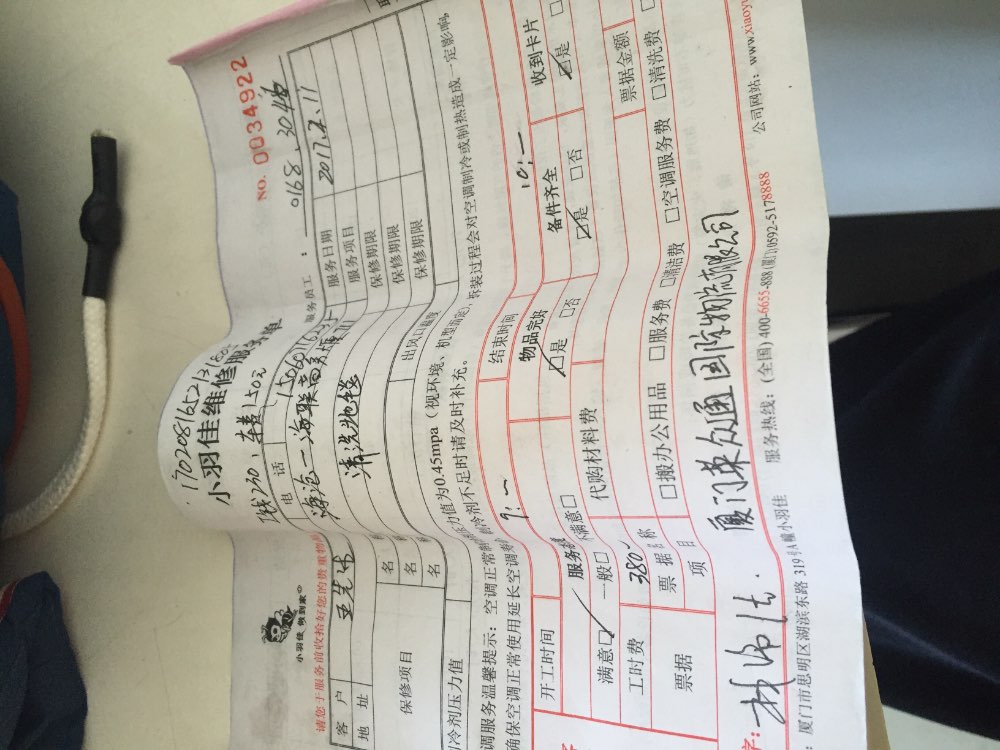 NO. 0034922
17020816521318
小羽佳维修服务维
小羽佳 做到家
请您于服务前收拾好您的贵重物
服务员工：0168、3046
服务日期 2017.2.11
客户 王先生
电话 1506011629
地址 海沧一海联商务
服务项目
清洗地毯
保修期限
保修期限
保修期限
保修项目
名
名
名
制冷剂压力值
出风口温度
调服务温馨提示：空调正常制
力值为0.45mpa（视环境、机型而定），拆装过程会对空调制冷或制热造成一定影响，
确保空调正常使用延长空调寿
制冷剂不足时请及时补充。
开工时间 9:—
结束时间 10:—
服务
物品完好
备件齐全
收到卡片
满意☑ 一般□ 不满意□
☑是 □否
☑是 □否
☑是 □
工时费 380
代购材料费
票据金额
票据
票据名称
项目
□搬办公用品 □服务费 □清洁费 □空调服务费 □清洗费
厦门英众通国际物流有限公司
字：
：厦门市思明区湖滨东路319号A幢小羽佳
服务热线：(全国) 400-6655-888(厦门)0592-5178888
公司网站：www.xiaoyu